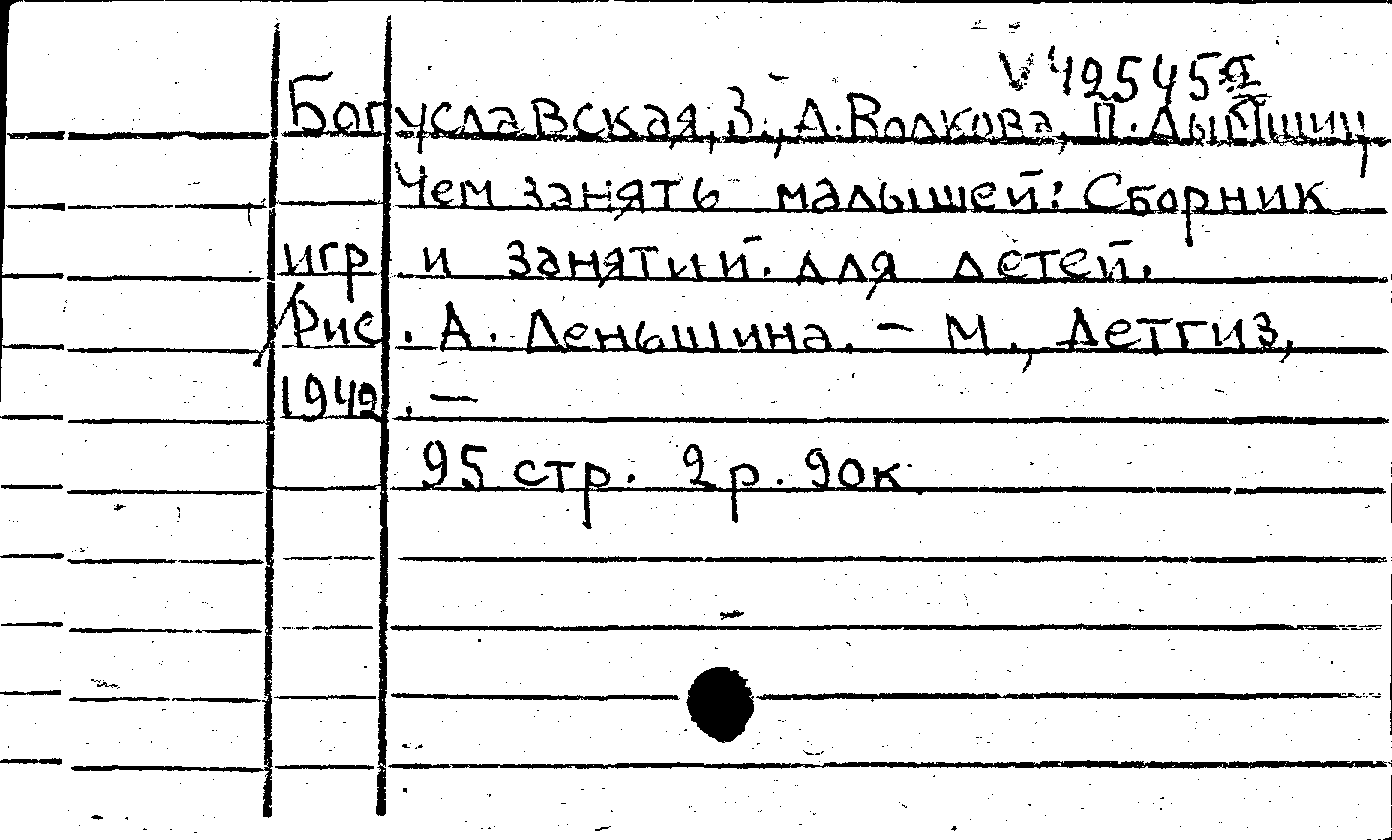 V 425452
Богуславская, З., А. Волкова, П. Дымшиц
Чем занять малышей: Сборник
игр и занятий для детей.
Рис. А. Деньшина. – М., Детгиз,
1942. –
95 стр. 2 р. 90к.